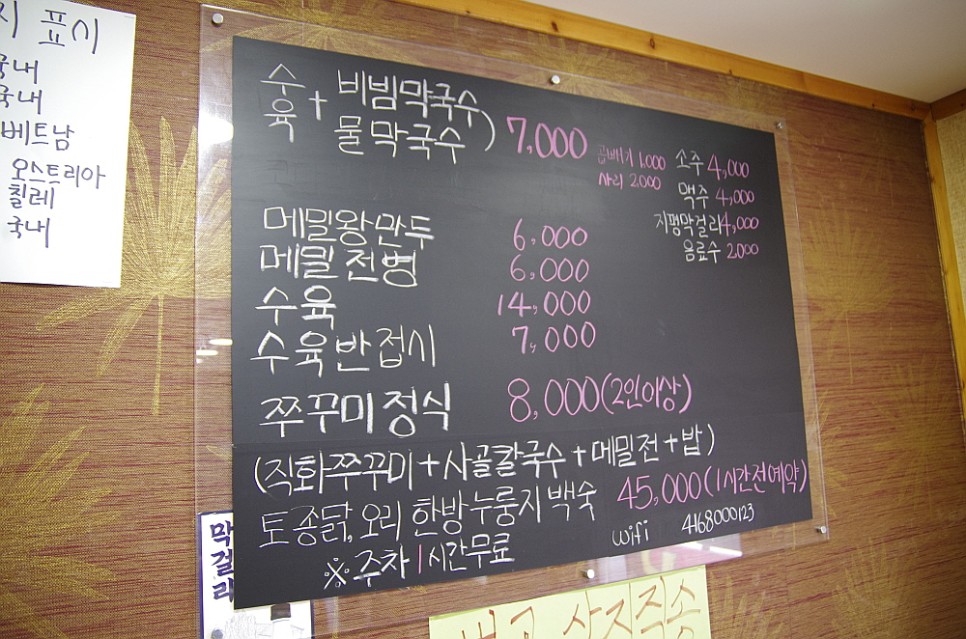 지 표시
국내
국내
베트남
오스트리아
칠레
국내
수육 + 비빔막국수
물막국수) 7,000
곱배기 1.000
사리 2.000
소주 4,000
맥주 4,000
지평막걸리 4,000
음료수 2.000
메밀왕만두 6,000
메밀전병 6,000
수육 14,000
수육반접시 7,000
쭈꾸미정식 8,000(2인이상)
(직화쭈꾸미+사골칼국수+메밀전+밥)
토종닭,오리 한방누룽지백숙 45,000(1시간전예약)
※주차 1시간무료
wifi 4168000123
막걸리
산지직송